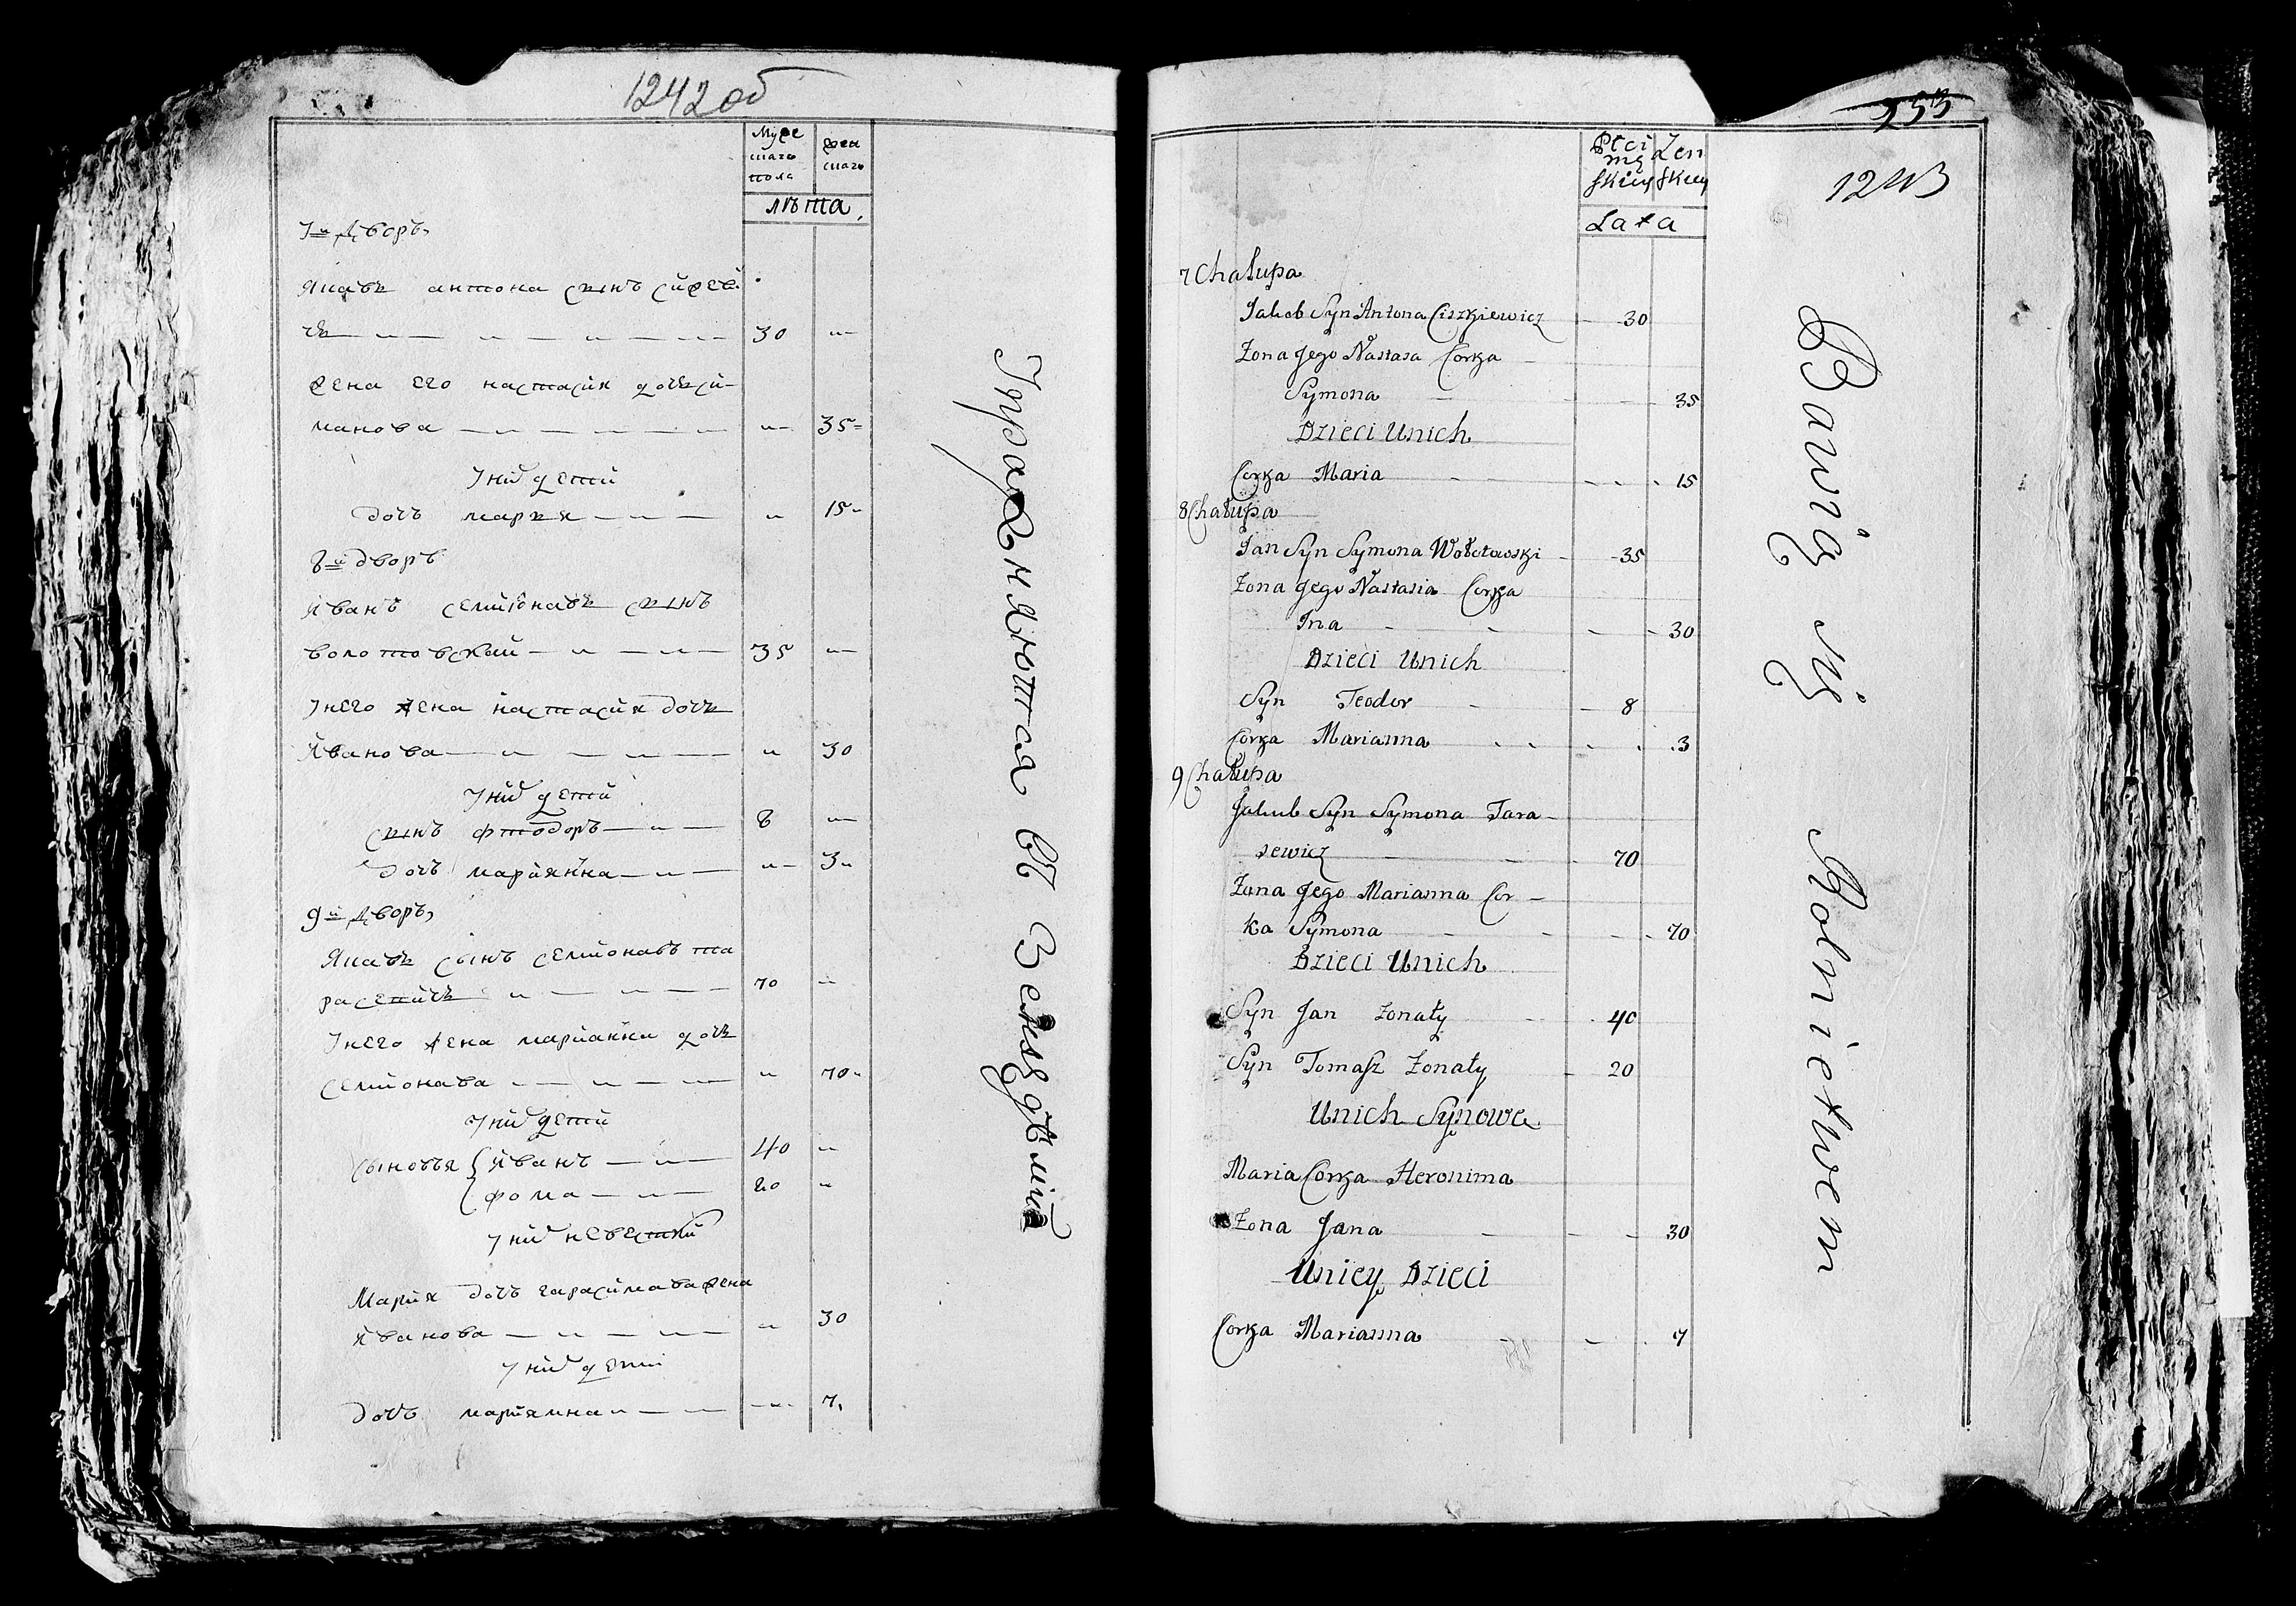 1242 об
Муже
скаго
пола
жен
скаго
лѣта
7й Дворъ
Якавъ антона сынъ
30
жена его настасия дочь си-
манова 35
Уних детей
дочъ мария 15
8й дворъ
Иванъ семионавъ сынъ
волотовской 35
Унего жена настасия дочь
Иванова 30
Уних детей
сынъ фтодоръ 8
дочъ мариянна 3
9й Дворъ
Якавъ сынъ семионавъ та
расевичъ 70
Унего жена марианна дочь
семионава 70
Уних детей
сыновья Иванъ 40
фома 20
Уних невестки
Мария дочъ гарасимава жена
Иванова 30
Уних детей
дочъ мариянна 7
Упражняются въ Земледѣлии
253
1243
Płci
mę
skiey
Żen
skiey
Lata
7 Chałupa
Jakob Syn Antona Ciszkiewicz 30
Żona Jego Nastasa Corka
Symona 35
Dzieci Unich
Corka Maria 15
8 Chałupa
Jan Syn Symona Wołotowski 35
Żona Jego Nastasia Corka
Ina 30
Dzieci Unich
Syn Teodor 8
Corka Marianna 3
9 Chałupa
Jakub Syn Symona Tara-
sewicz 70
Żona Jego Marianna Cor-
ka Symona 70
Dzieci Unich
Syn Jan Żonaty 40
Syn Tomasz Żonaty 20
Unich Synowe
Maria Corka Heronima
Żona Jana 30
Uniey Dzieci
Corka Marianna 7
Bawią się Rolnictwem